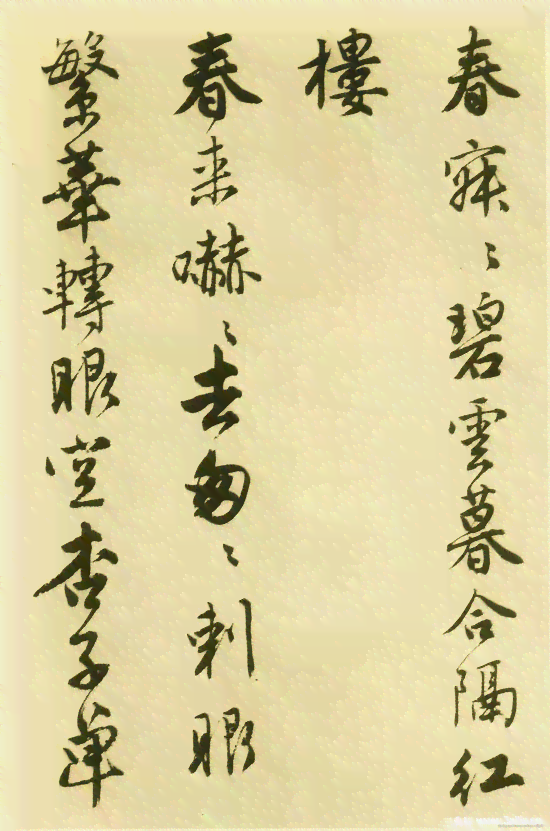 春寂〻碧雲暮合隔紅
樓
春来嚇〻去匆〻刺眼
繁華轉眼空杏子單